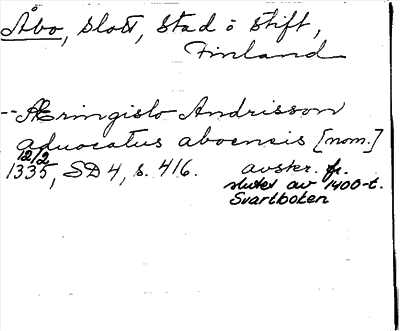 Åbo, slott, stad o stift,
Finland
--Æringislo Andrisson
aduocatus aboensis [nom.]
12/2
1335, SD 4, s. 416. avskr. fr.
slutet av 1400-t.
Svartboken